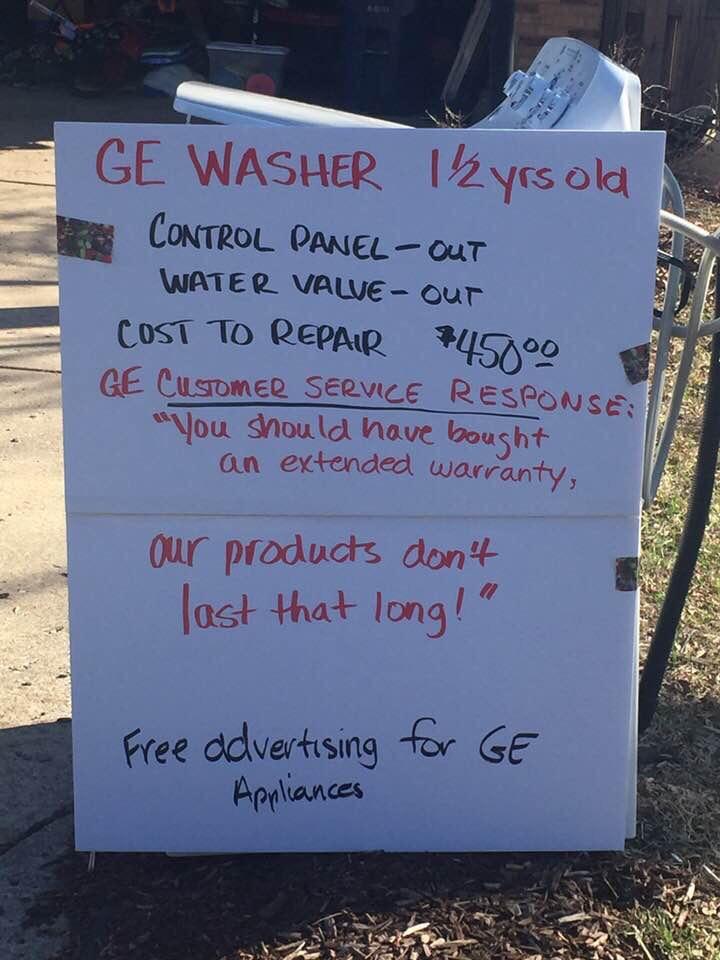 GE WASHER 1 1/2 yrs old
CONTROL PANEL - OUT
WATER VALVE - OUT
COST TO REPAIR $450.00
GE CUSTOMER SERVICE RESPONSE:
"You should have bought
an extended warranty,
our products don't
last that long!"
Free advertising for GE
Appliances